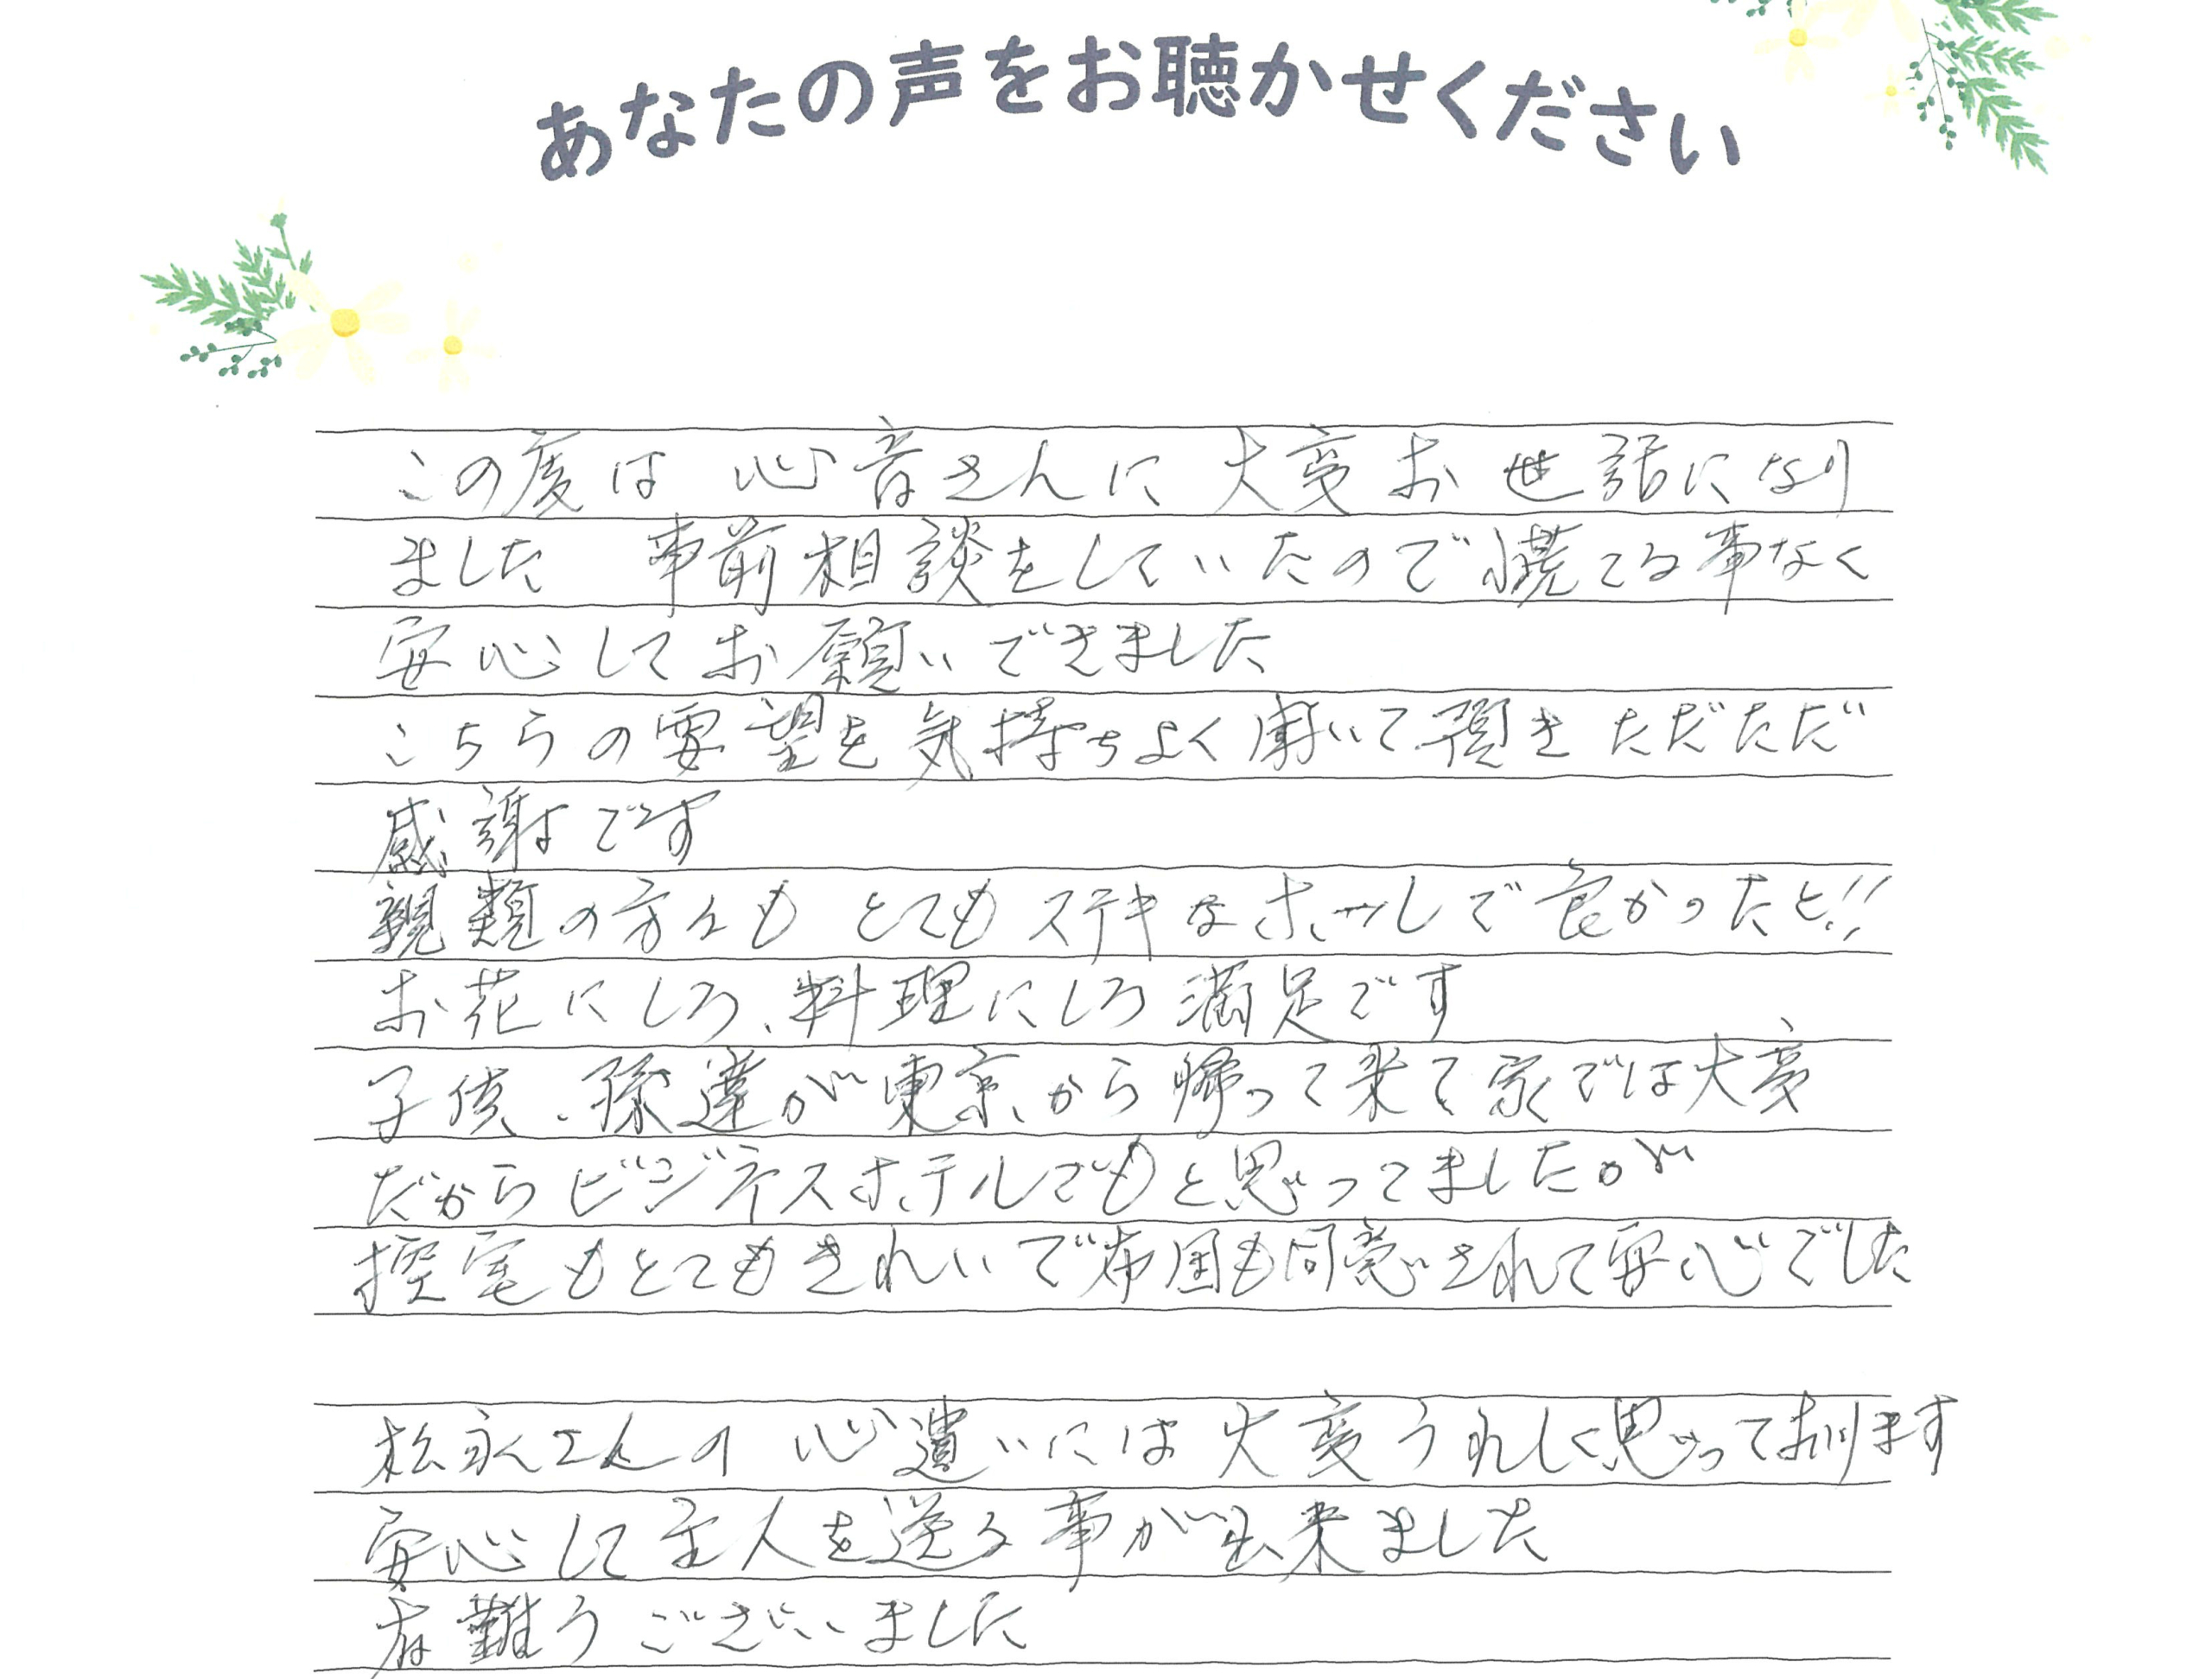 あなたの声をお聴かせください
この度は 心音さんに 大変お世話になり
ました 事前相談をしていたので慌てる事なく
安心してお願いできました
こちらの要望を気持ちよく聞いて頂き ただただ
感謝です
親類の方々も とてもステキなホールで良かったと!!
お花にしろ、料理にしろ 満足です
子供、孫達が東京から帰って来て家では大変
だからビジネスホテルでもと思ってましたが
控室もとてもきれいで布団も用意されて安心でした
松永さんの 心遣いには大変うれしく思っております
安心して主人を送る事が出来ました
有難うございました